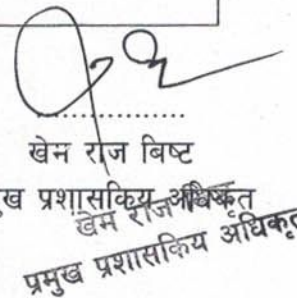 खेम राज बिष्ट
मुख प्रशासकिय अधिकृत
खेम राज बिष्ट
प्रमुख प्रशासकिय अधिकृत